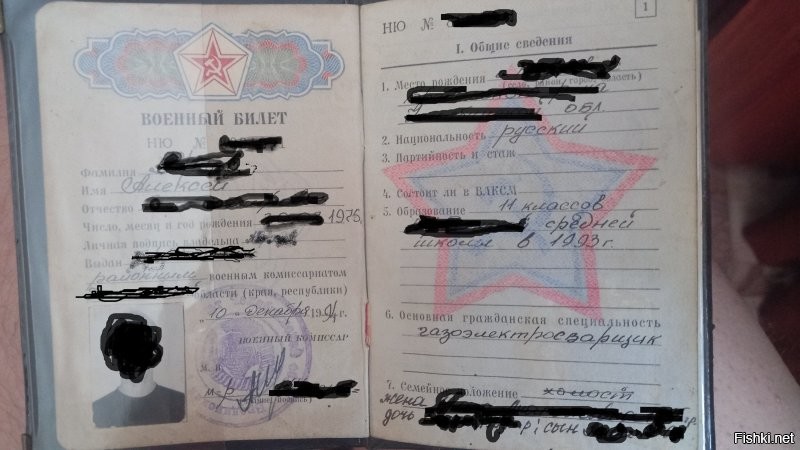 ВОЕННЫЙ БИЛЕТ
НЮ №
Фамилия
Имя Алексей
Отчество
Число, месяц и год рождения 1976
Личная подпись владельца
Выдан
районным военным комиссариатом
области (края, республики)
"10" декабря 1994 г.
ВОЕННЫЙ КОМИССАР
М. П.
м-р
(подпись)
НЮ №
1
I. Общие сведения
1. Место рождения
(село, район, город, область)
обл.
2. Национальность русский
3. Партийность и стаж
4. Состоит ли в ВЛКСМ
5. Образование 11 классов
средней
школы в 1993 г.
6. Основная гражданская специальность
газоэлектросварщик
7. Семейное положение холост
жена
дочь
сын
Fishki.net